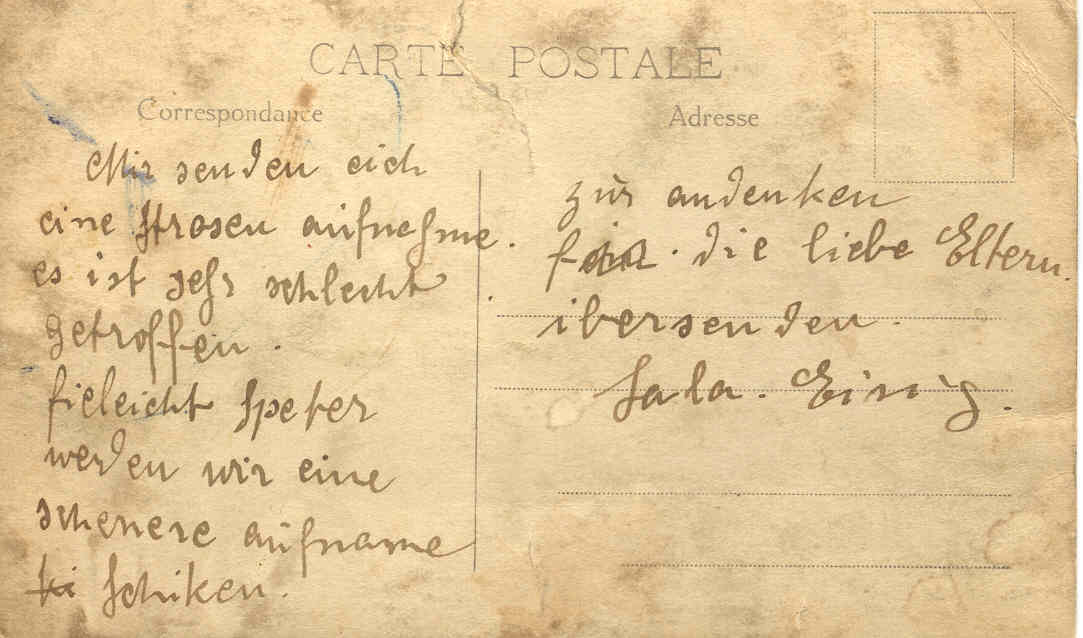 CARTE POSTALE
Correspondance
Adresse
Mir senden eich
eine Strosen aufnehme.
es ist sehr schlecht
getroffen.
fieleicht speter
werden wir eine
schenere aufname
schiken.
zur andenken
die liebe Eltern.
ibersenden.
Sala.